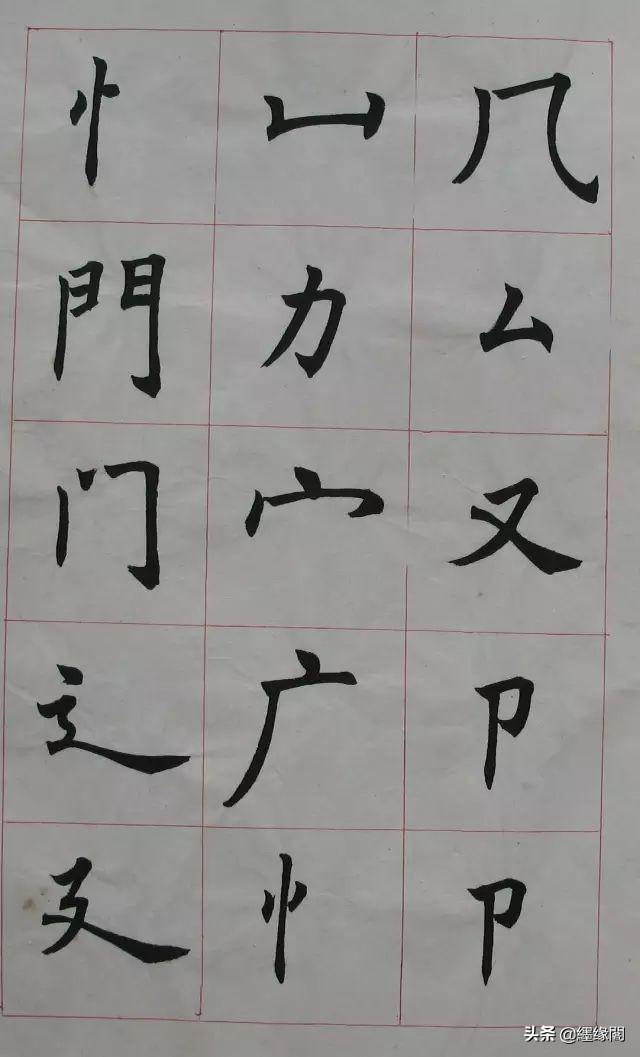 几厶又卩卩
凵力宀广忄
忄門门辶廴
头条 @缘閣